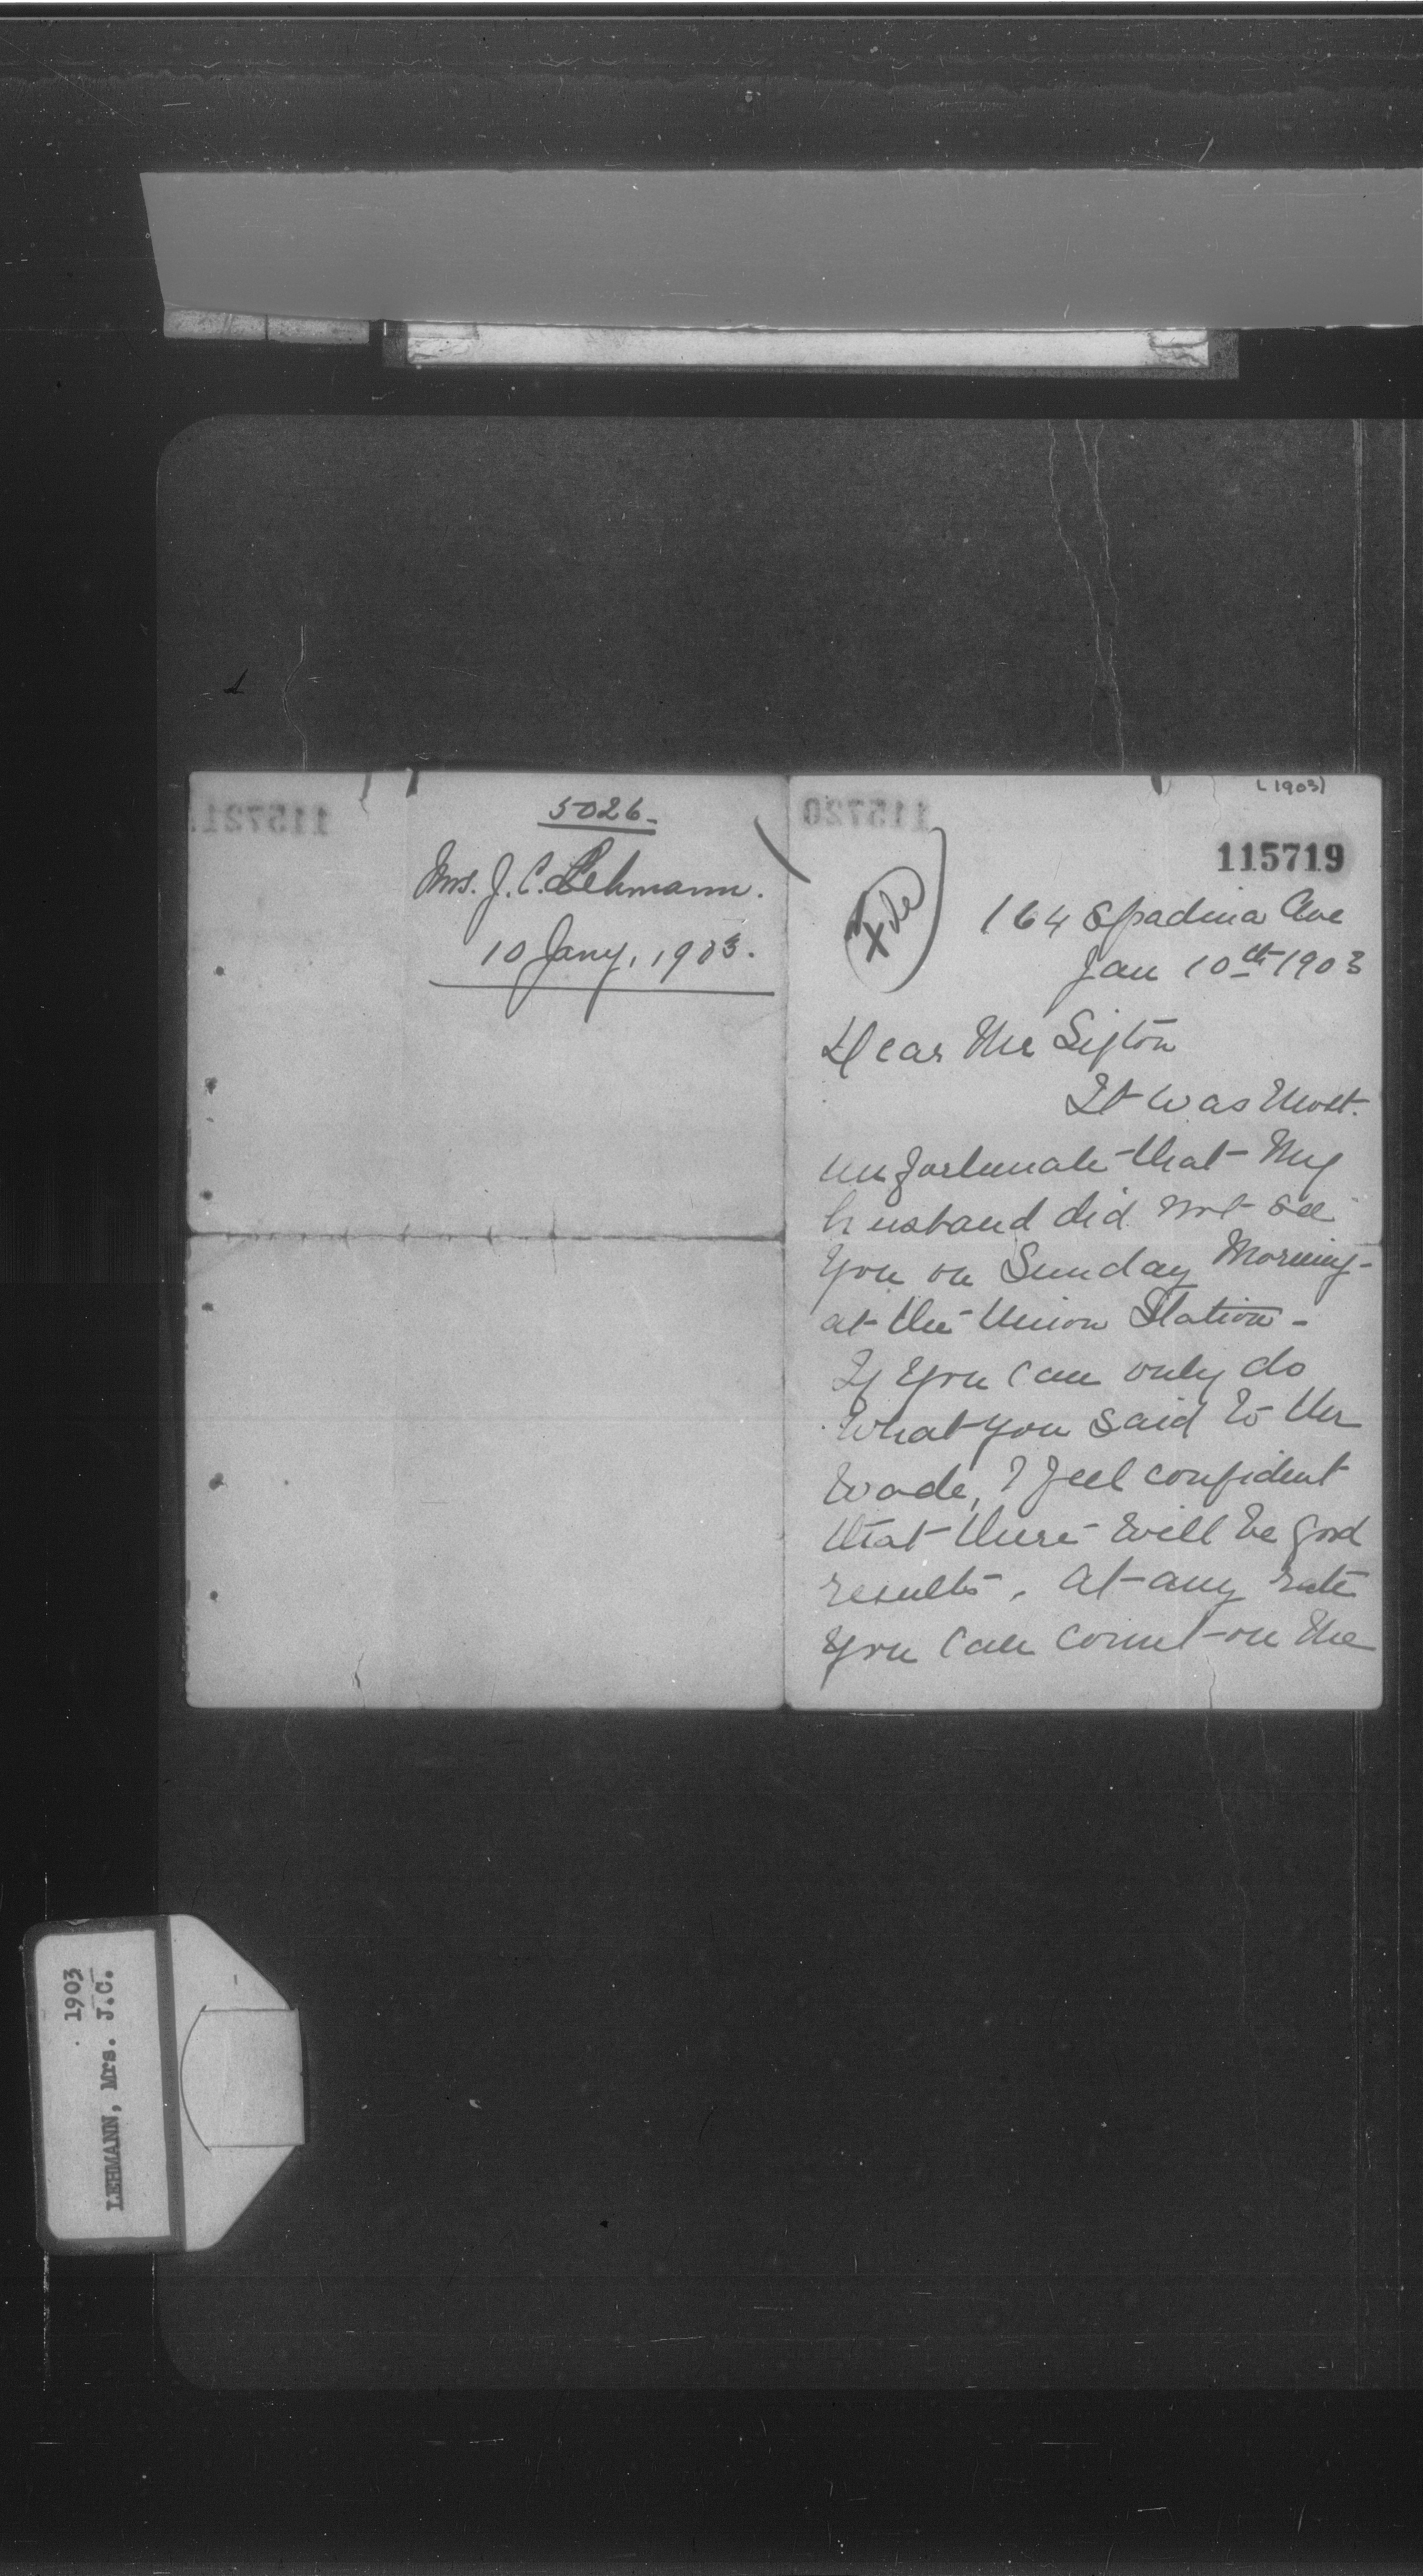 115721
5026.
Mrs. J. C. Lehmann.
10 Jany, 1903.
115720
(1903)
115719
File
164 Spadina Ave
Jan 10th 1903
Dear Mr Sifton
It was most
unfortunate that my
husband did not see
you on Sunday morning-
at the Union Station-
If you can only do
what you said to Mr
Wade, I feel confident
that there will be good
results. At any rate
you can count on the
1903
LEHMANN, Mrs. J.C.